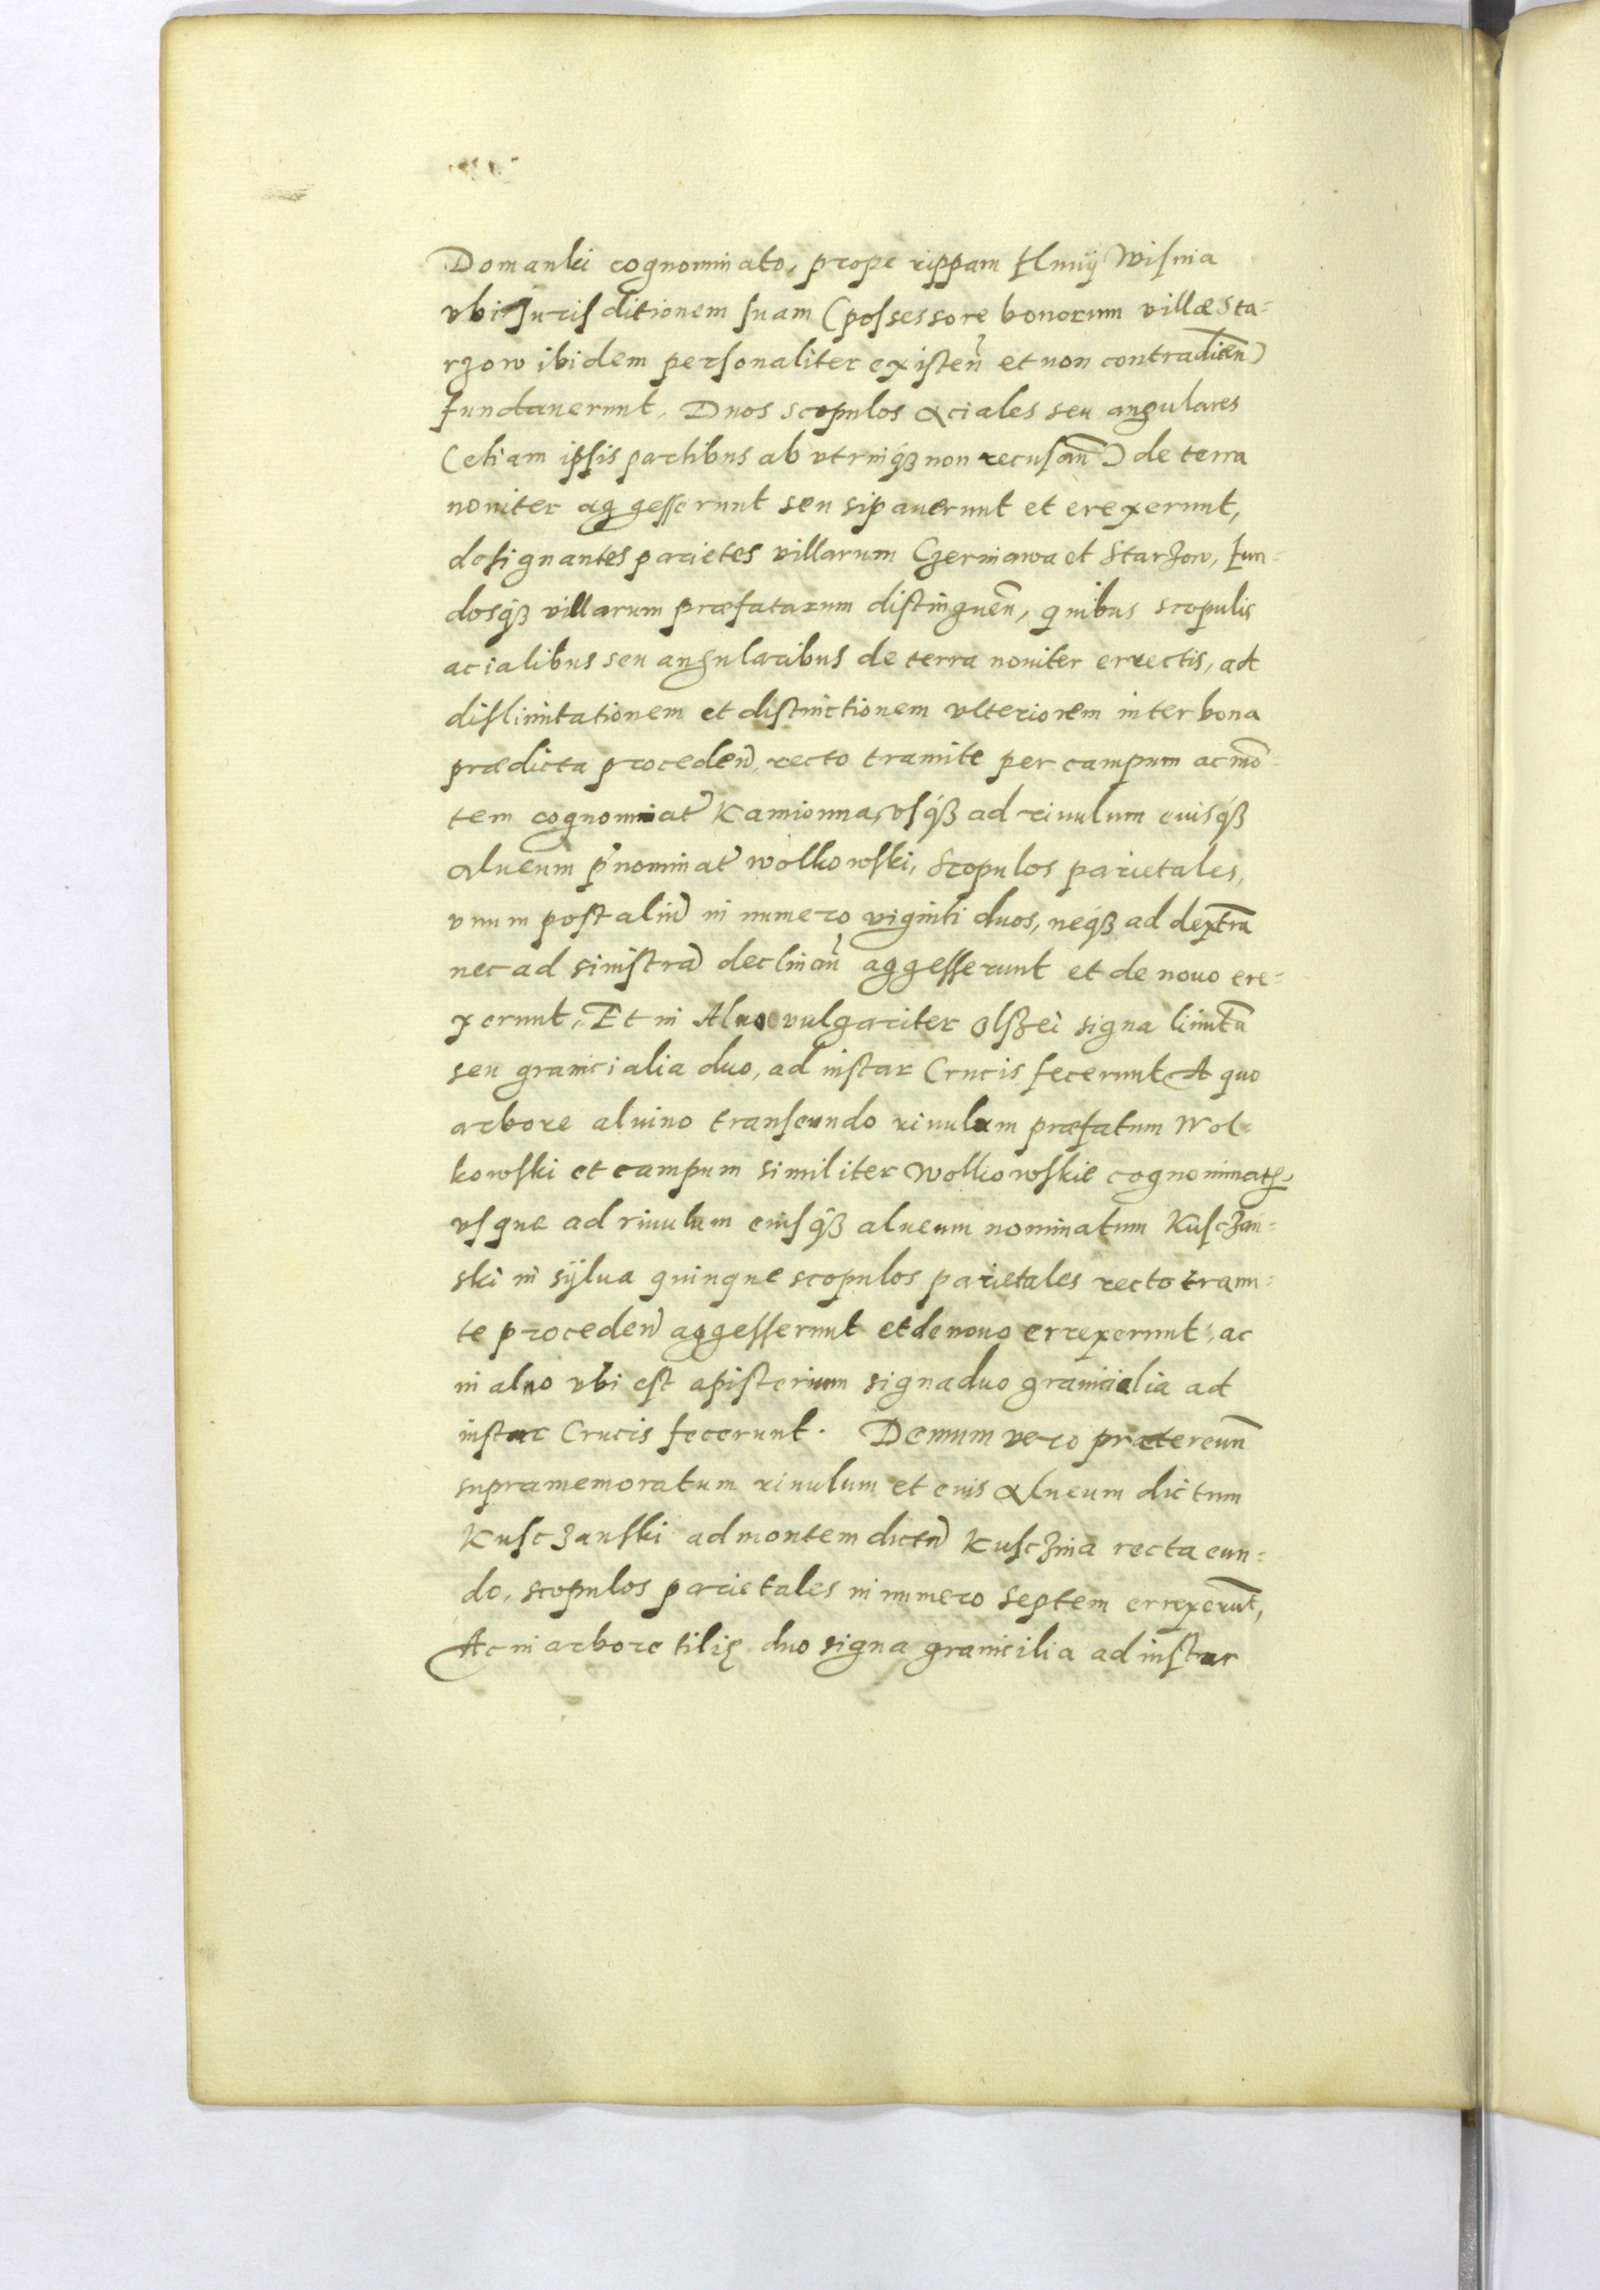 Domanki cognominato, prope rippam fluuij Wisnia
vbi Jurisditionem suam (possessore bonorum villæ Sta=
rzow ibidem personaliter existen̄ et non contradicen̄)
fundauerunt, Duos scopulos aciales seu angulares
(etiam ipsis partibus ab vtrinq́ꝫ non recusan̄) de terra
nouiter aggesserunt seu sipauerunt et erexerunt,
designantes parietes villarum Czerniawa et Starzow, fun=
dosq́ꝫ villarum præfatarum distinguen̄, quibus scopulis
acialibus seu angularibus de terra nouiter errectis, ad
dislimitationem et distinctionem vlteriorem inter bona
prædicta proceden̄, recto tramite per campum ac mō=
tem cognominat̄ Kamionna, vsq́ꝫ ad riuulum euisq́ꝫ
Alueum p̄nominat̄ Wolkowski, Scopulos parietales,
vnum post aliū in numero viginti duos, neq́ꝫ ad dextrā
nec ad sinistrā declinan̄ aggesserunt et de nouo ere=
xerunt, Et in Alno vulgariter Olszei signa limitū
seu granicialia duo, ad instar Crucis fecerunt A quo
arbore alnino transeundo riuulum præfatum Wol=
kowski et campum similiter Wolkowskie cognominatę,
vsque ad riuulum eiusq́ꝫ alueum nominatum Kusczan=
ski in sÿlua quinque scopulos parietales recto trami=
te proceden̄ aggesserunt et de nouo errexerunt, ac
in alno vbi est apisterium signa duo granicialia ad
instar Crucis fecerunt. Demum vero prætereun̄
supramemoratum riuulum et euis Alueum dictum
Kusczanski ad montem dictū Kusczina recta eun=
do, scopulos parietales in numero septem errexerūt,
Ac in arbore tilię duo signa granicilia ad instar